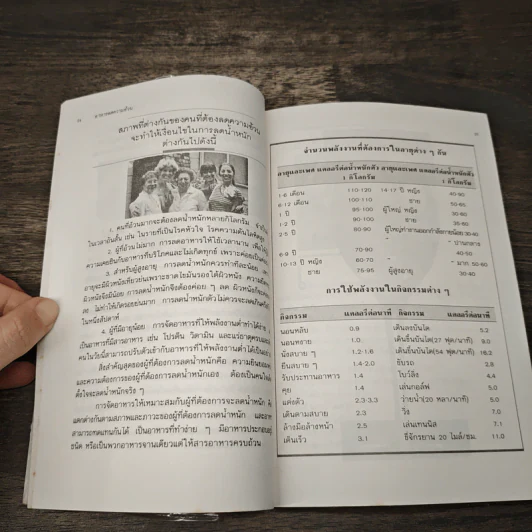 อาหารลดความอ้วน
สภาพที่ต่างกันของคนที่ต้องลดความอ้วน
จะทำให้เงื่อนไขในการลดน้ำหนัก
ต่างกันไปดังนี้
1. คนที่อ้วนมากจะต้องลดน้ำหนักหลายกิโลกรัม จำเป็น
ในเวลาอันสั้น เช่น ในรายที่เป็นโรคหัวใจ โรคความดันโลหิตสูง
2. ผู้ที่อ้วนไม่มาก การลดอาหารให้ใช้เวลานาน เพื่อให้
ความเคยชินกับอาหารที่บริโภคและไม่เกิดทุกข์ เพราะค่อยเป็นค่อย
3. สำหรับผู้สูงอายุ การลดน้ำหนักควรทำทีละน้อย
อายุจะมีผิวหนังเหี่ยวย่นเพราะขาดไขมันรองใต้ผิวหนัง ความยืด
ผิวหนังจึงน้อย การลดน้ำหนักจึงต้องค่อย ๆ ลด ผิวหนังก็จะค่อย
ลง ไม่ทำให้เกิดรอยย่นมาก การลดน้ำหนักตัวไม่ควรจะลดเกิน
ในหนึ่งสัปดาห์
4. ผู้ที่มีอายุน้อย การจัดอาหารที่ให้พลังงานต่ำทำได้ง่าย
เป็นอาหารที่มีสารอาหาร เช่น โปรตีน วิตามิน และแร่ธาตุครบ
คนในวัยนี้สามารถปรับตัวเข้ากับอาหารที่ให้พลังงานต่ำได้เป็น
สิ่งสำคัญสุดของผู้ที่ต้องการลดน้ำหนักคือ ความยินยอม
และความต้องการของผู้ที่ต้องการลดน้ำหนักเอง ต้องเป็นคน
ตั้งใจจะลดน้ำหนักจริง ๆ
การจัดอาหารให้เหมาะสมกับผู้ที่ต้องการจะลดน้ำหนัก
แตกต่างกันตามสภาพและภาวะของผู้ที่ต้องการลดน้ำหนัก และ
สามารถทดแทนกันได้ เป็นอาหารที่ทำง่าย ๆ มีอาหารประกอบ
ชนิด หรือเป็นพวกอาหารจานเดียวแต่ให้สารอาหารครบถ้วน
จำนวนพลังงานที่ต้องการในอายุต่าง ๆ กัน
อายุและเพศ แคลอรีต่อน้ำหนักตัว อายุและเพศ แคลอรีต่อน้ำหนักตัว
1 กิโลกรัม 1 กิโลกรัม
1-6 เดือน 110-120 14-17 ปี หญิง 40-50
6-12 เดือน 100-110 ชาย 50-55
1 ปี 95-100 ผู้ใหญ่ หญิง 30-60
1-2 ปี 90-100 ชาย 35-60
2-5 ปี 80-90 ผู้ใหญ่ทำงานออกกำลังกายน้อย 30-40
" ปานกลาง
6-9 ปี 70-90 40-45
10-13 ปี หญิง 60-70 " มาก 50-60
ชาย 75-95 ผู้สูงอายุ 30-40
การใช้พลังงานในกิจกรรมต่าง ๆ
กิจกรรม แคลอรีต่อนาที กิจกรรม แคลอรีต่อนาที
นอนหลับ 0.9 เดินลงบันได 5.2
นอนหงาย 1.0 เดินขึ้นบันได(27 ฟุต/นาที) 9.0
นั่งสบาย ๆ 1.2-1.6 เดินขึ้นบันได(54 ฟุต/นาที) 16.2
ยืนสบาย ๆ 1.4-2.0 ขับรถ 2.8
รับประทานอาหาร 1.4 โบว์ลิ่ง 4.4
คุย 1.4 เล่นกอล์ฟ 5.0
แต่งตัว 2.3-3.3 ว่ายน้ำ(20 หลา/นาที) 5.0
เดินตามสบาย 2.3 วิ่ง 7.0
ล้างมือล้างหน้า 2.5 เล่นเทนนิส 7.1
เดินเร็ว 3.1 ขี่จักรยาน 20 ไมล์/ชม. 11.0